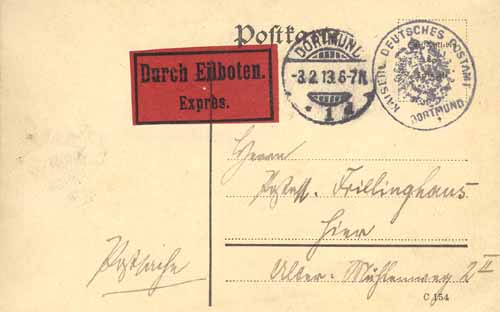 Postkarte
Durch Eilboten.
Exprès.
DORTMUND
-3.2.13.6-7N.
* 1 z
KAISERL. DEUTSCHES POSTAMT
DORTMUND
Herrn
Postass. Frillinghaus
hier
Postsache
Alter-Mühlenweg 2 II
C 154